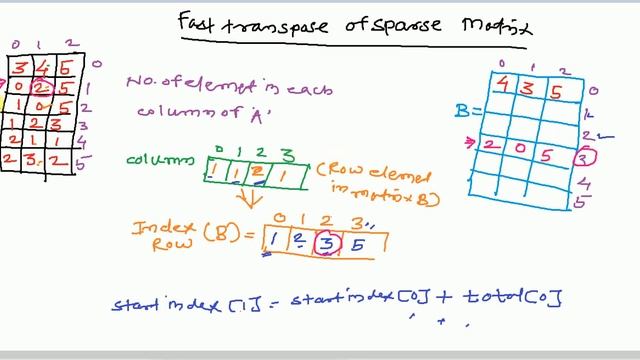 Fast transpose of sparse Matrix
0 1 2
3 4 5 0
0 2 5 1
1 0 5 2
1 2 3 3
2 1 1 4
2 3 2 5
No. of elemet in each
columns of 'A'
0 1 2 3
columns 1 1 2 1 (Row elemet
in matrix B)
0 1 2 3
Index (B) = 1 2 3 5
Row
startindex[1] = startindex[0] + total[0]
0 1 2
4 3 5 0
B = 1
2
2 0 5 3
4
5